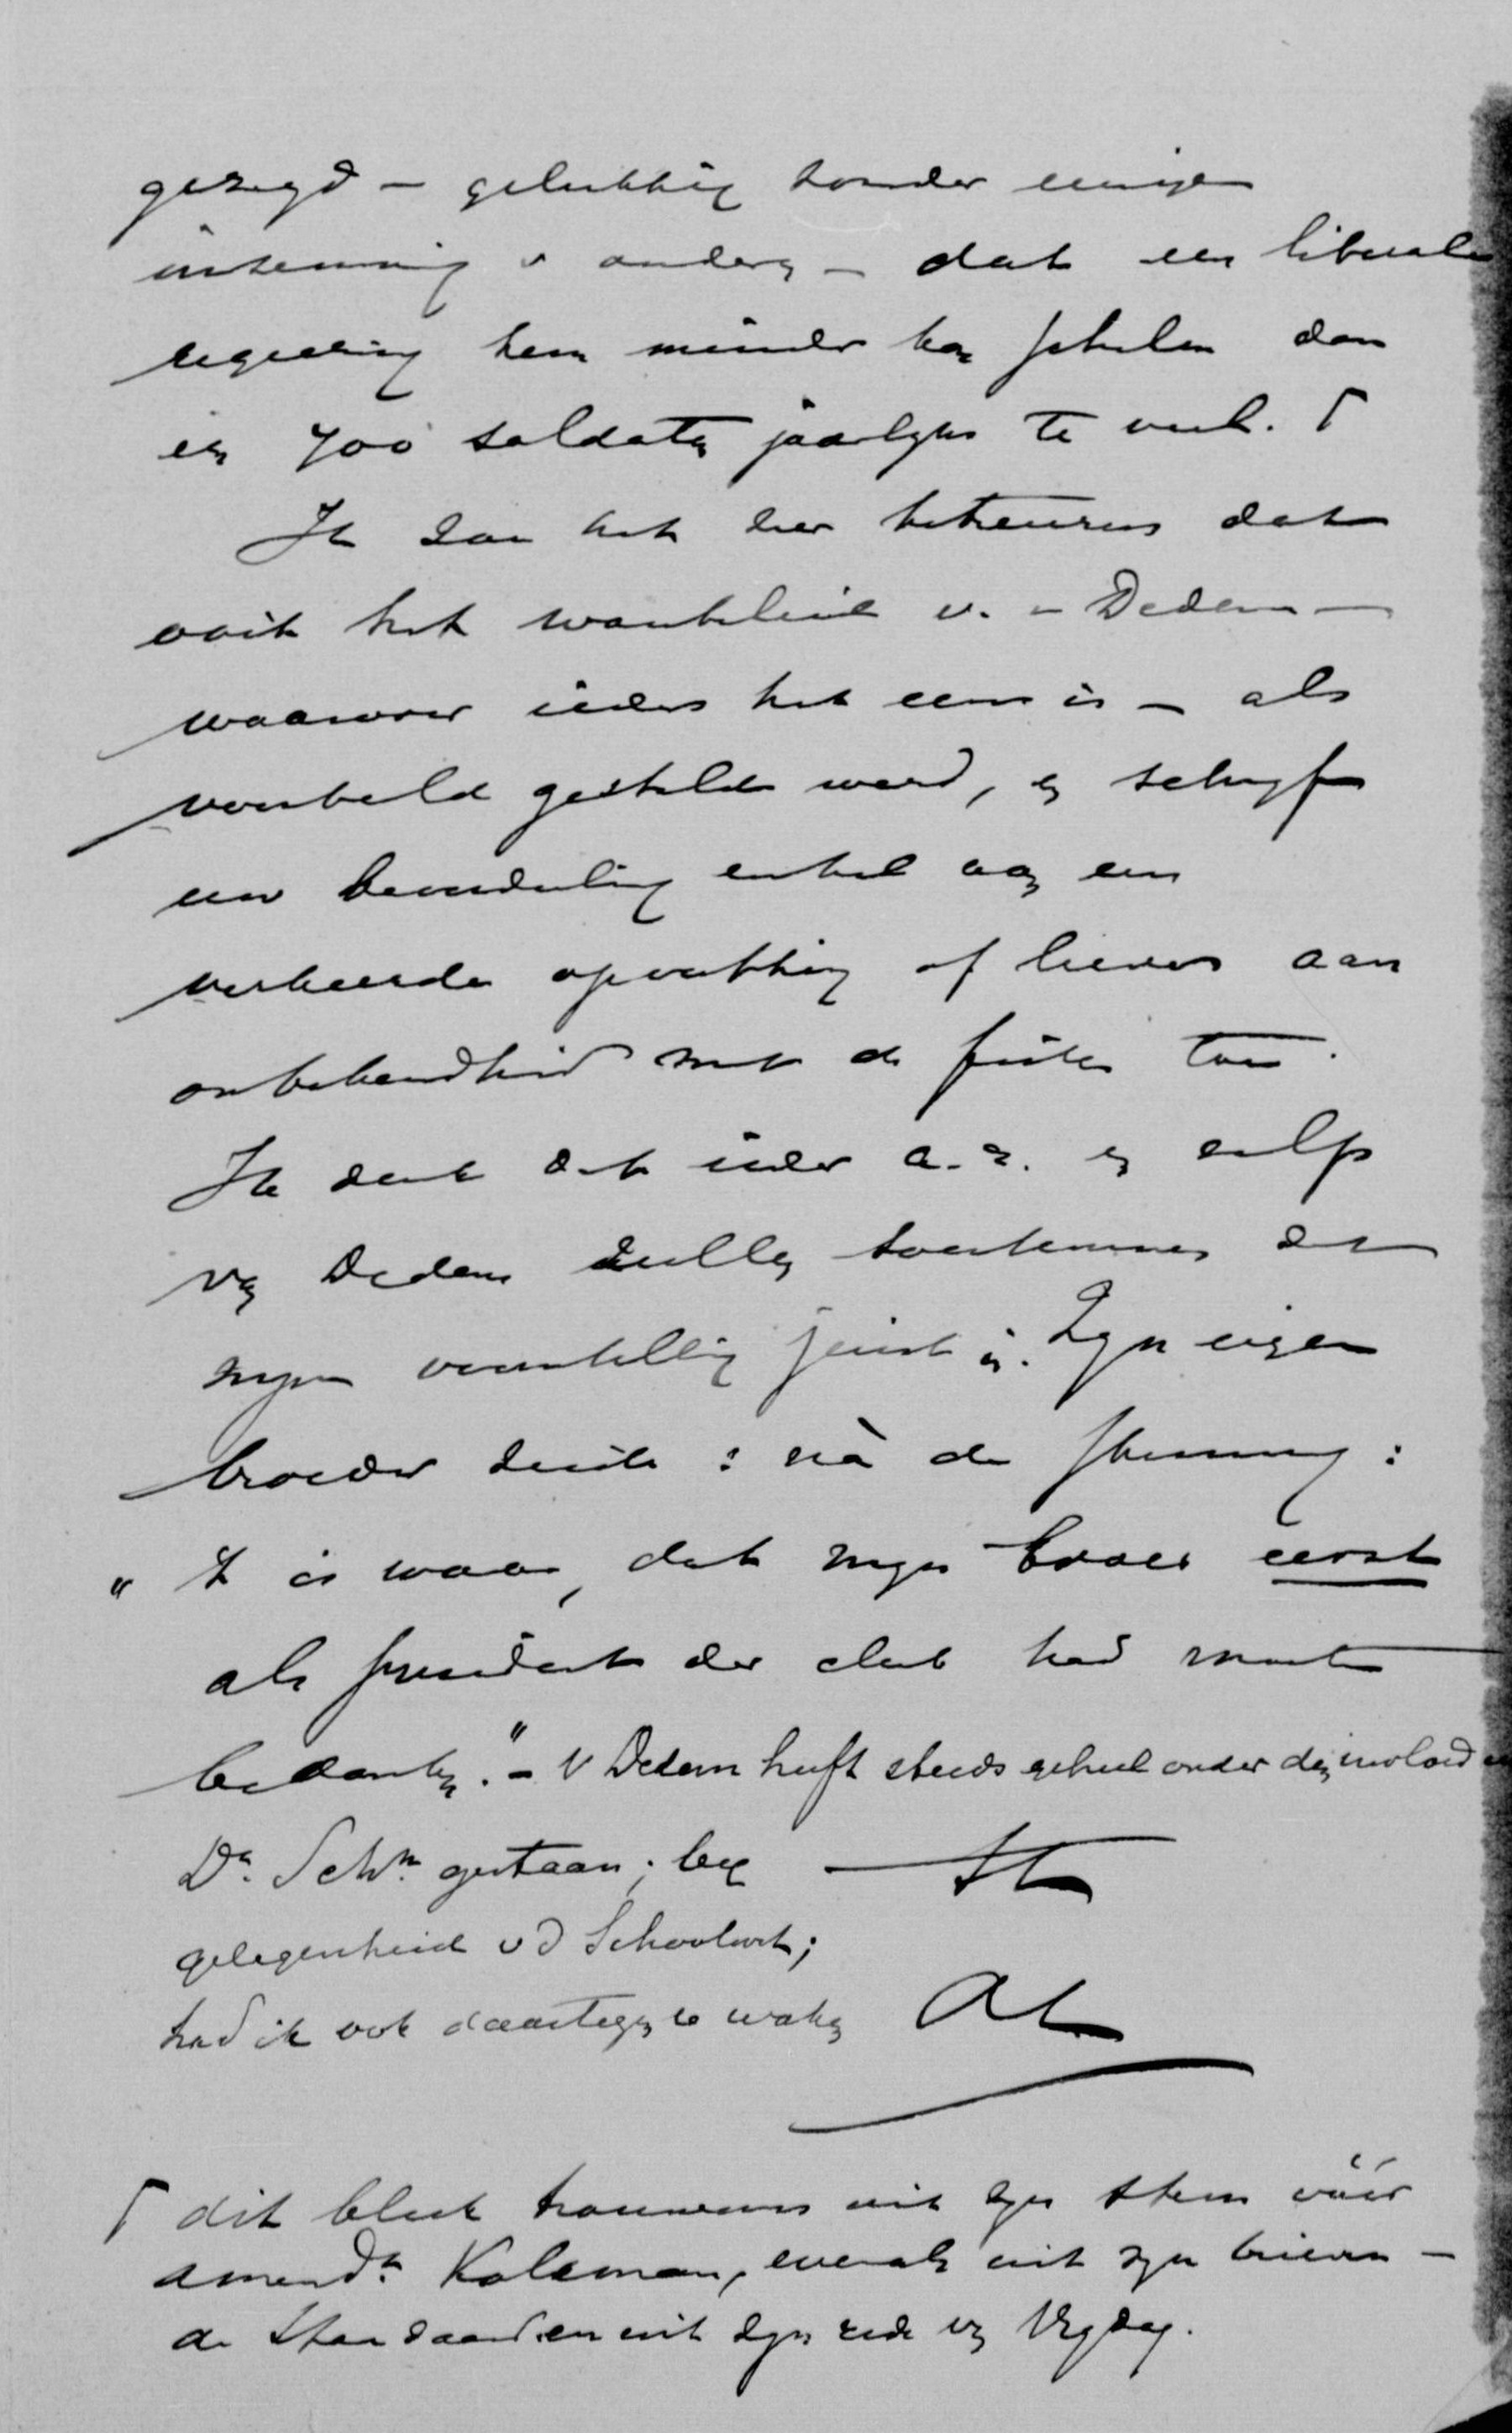 gezegd – gelukkig zonder eenige
instemming v anderen – dat een liberale
regeering hem minder kon schelen dan
een 700 soldaten jaarlyks te veel. Γ
Ik zou het zeer betreuren dat
ooit het wankelend v. – Dedem –
waarover ieder het eens is – als
voorbeeld gesteld werd, en schryf
uw beoordeeling enkel aan een
verkeerde opvatting of liever aan
onbekendheid met de feiten toe.
Ik denk dat ieder a.r. en zelfs
van Dedem zullen toestemmen dat
myn voorstelling juist is. Zyn eigen
broeder zeide : nà de stemming :
"'t is waar, dat myn broer eerst
als president der club had moeten
bedanken." – V Dedem heeft steeds geheel onder den invloed
Dr. Schn. gestaan ; by
gelegenheid v d Schoolwet ;
had ik ook daartegen te waken
Γ dit bleek trouwens uit zyn stem vóór
amendt. Kolkman, evenals uit zyn brieven –
de Standaard en uit zyn rede van Vrydag.